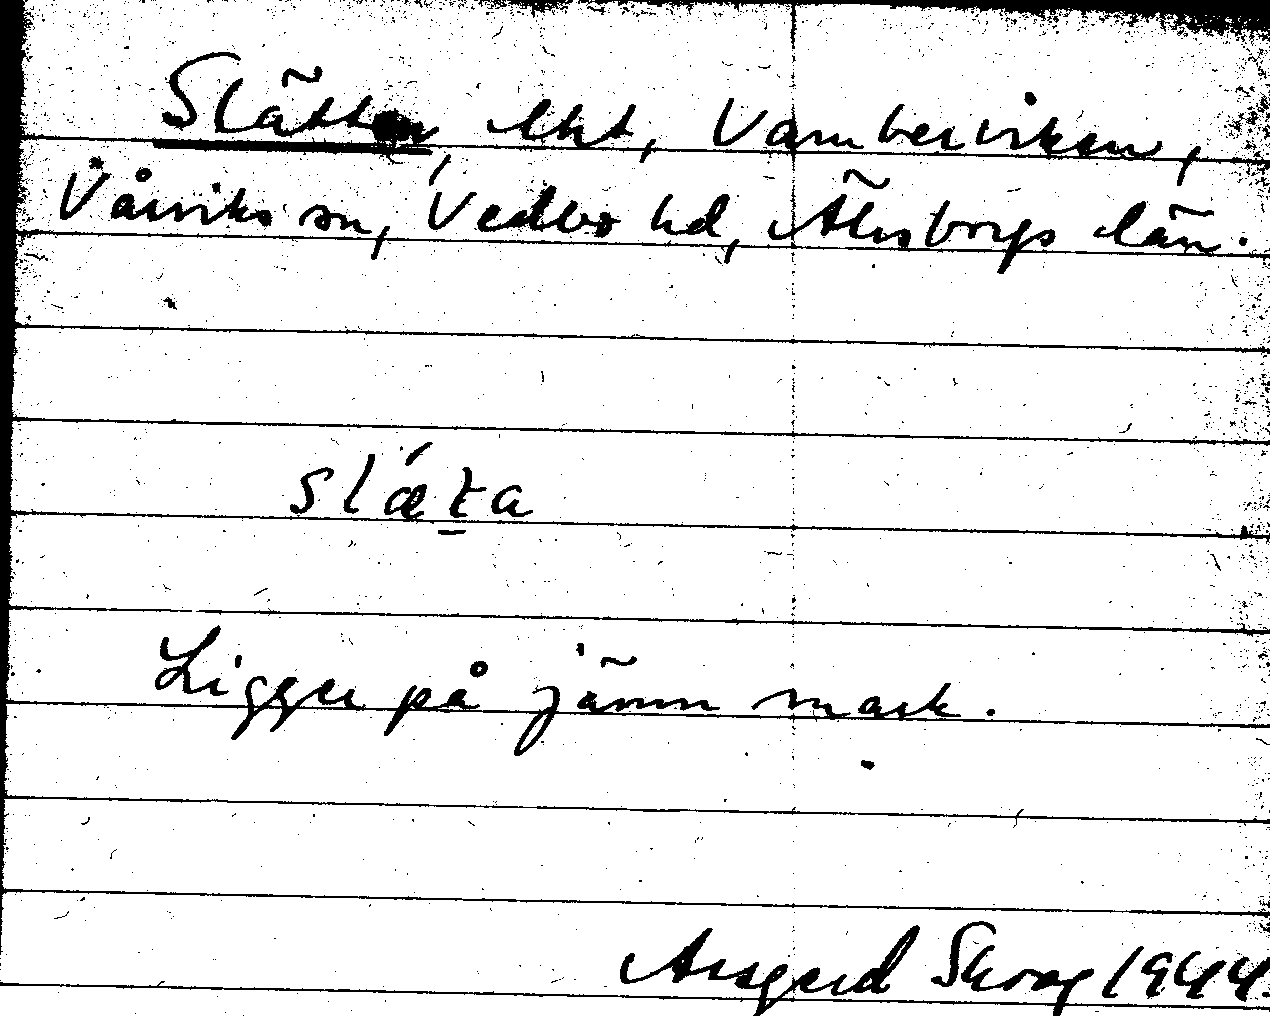 Slätten, lht, Vamberviken,
Vårviks sn, Vedbo hd, Älvsborgs län.
slǽt̠a
Ligger på jämn mark.
Asgerd Skog 1944.